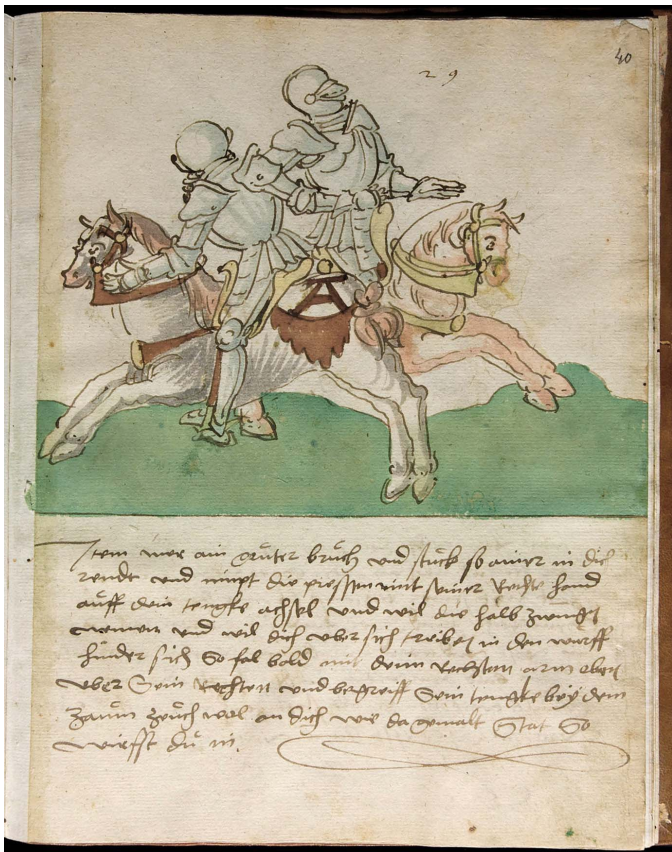 29
40
Item mer ain guter bruch und stuck so ainer in dich
rendt und nimpt die mit seiner Rechte hand
auff dein achsel und wil die halb
nemen und wil dich uber sich treiben in den wurff
hinder sich So fal bald mit deinn Rechten arm oben
uber Sein Rechten und begreiff Sein bey dem
zaum zeuch wol an dich wie da gemalt Stat So
wirfft du in